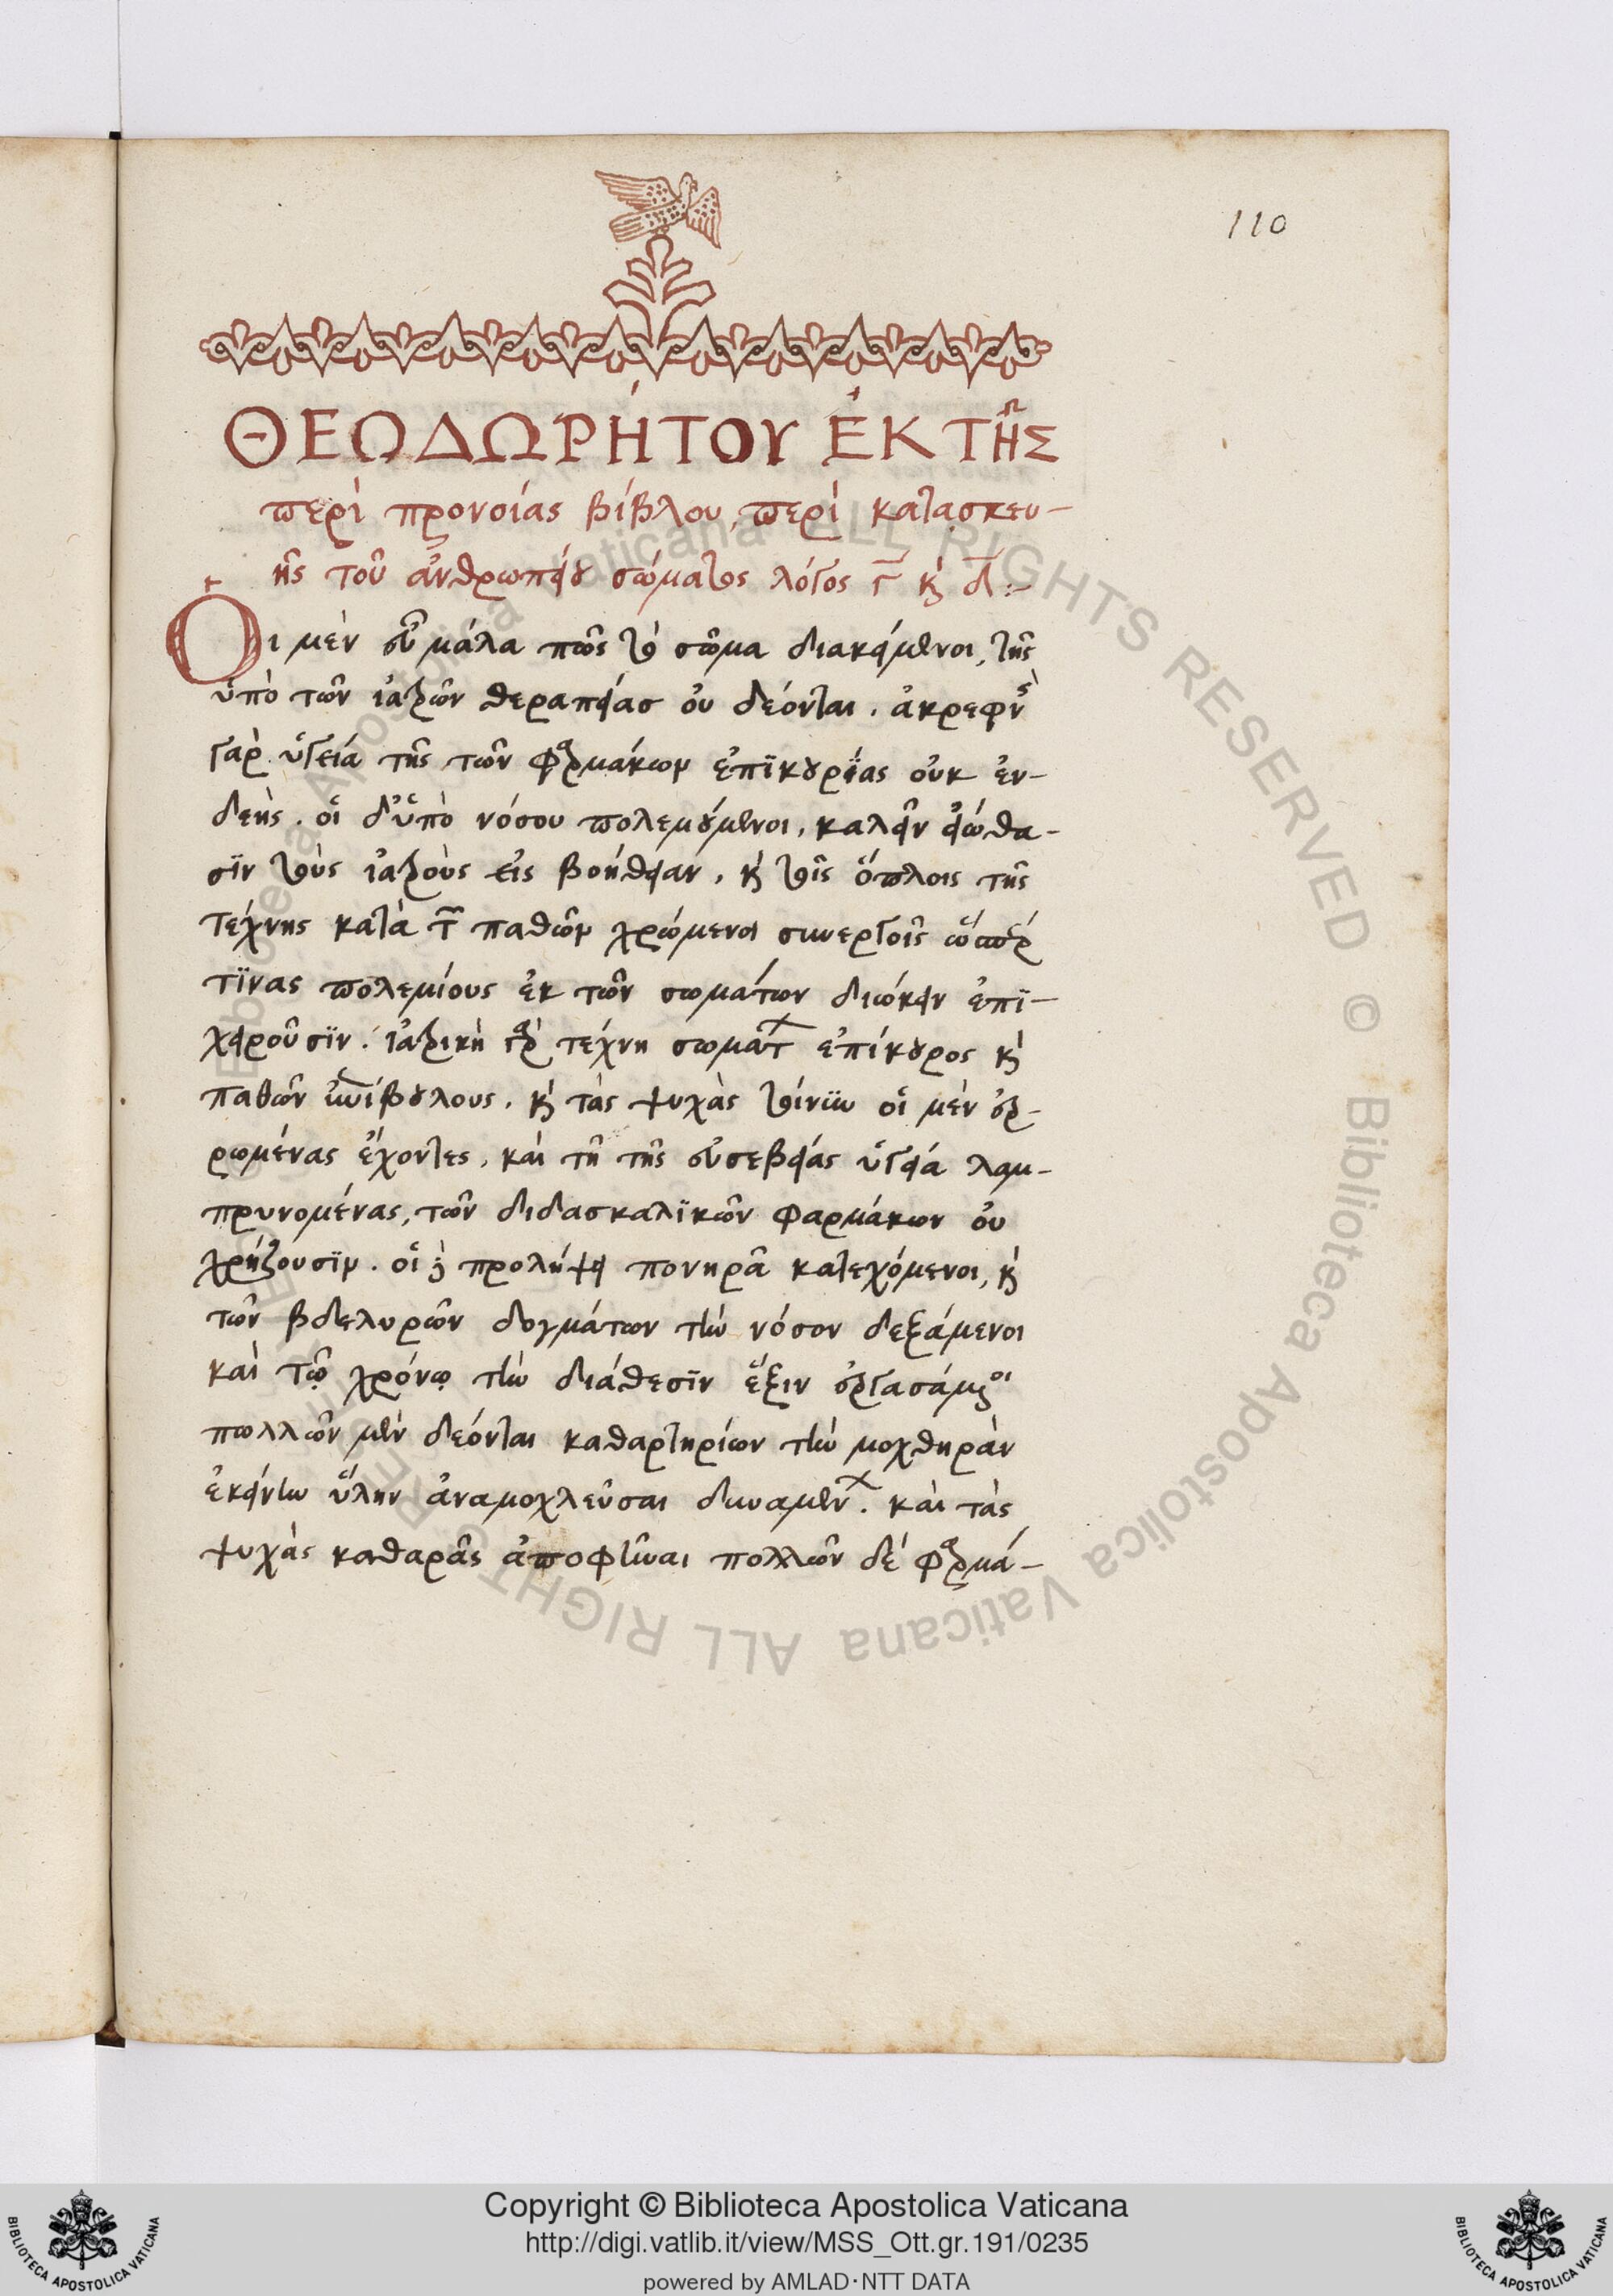 110
ΘΕΩΔΩΡΉΤΟΥ ἘΚ ΤΗ͂Σ
περὶ προνοίας βίβλου, περὶ κατασκευ-
ῆς τοῦ ἀνθρωπείου σώματος λόγος γ̄ καὶ δ̄ :-
Οι μὲν εὖ μάλα πῶς τὸ σῶμα διακείμενοι, τῆς
ὑπὸ τῶν ἰατρῶν θεραπείασ οὐ δέονται. ἀκρεφνὴς
γὰρ ὑγεία τῆς τῶν φαρμάκων ἐπϊκουρίας οὐκ ἐν-
δεὴς. οἱ δ' ὑπὸ νόσου πολεμούμενοι, καλεῖν εἰώθα-
σϊν τοὺς ἰατροὺς εἰς βοήθειαν, καὶ τοῖς ὅπλοις τῆς
τέχνης κατὰ τῶν παθῶν χρώμενοι συνεργοῖς ὥσπερ
τϊνας πολεμίους ἐκ τῶν σωμάτων διώκειν ἐπϊ-
χειροῦσϊν. ἰατρικὴ γὰρ τέχνη σωμάτων ἐπίκουρος καὶ
παθῶν ἐπίβουλους. καὶ τὰς ψυχὰς τοίνϋν οἱ μὲν ἐρ-
ρωμένας ἔχοντες, καὶ τῆ τῆς εὐσεβείας ὑγεία λαμ-
πρυνομένας, τῶν διδασκαλϊκῶν φαρμάκων οὐ
χρήζουσϊν. οἱ δὲ προλήψει πονηρᾶ κατεχόμενοι, καὶ
τῶν βδελυρῶν δογμάτων τὴν νόσον δεξάμενοι
καὶ τῷ χρόνῳ τὴν διάθεσϊν ἕξιν ἐργασάμενοι
πωλλῶν μὲν δέονται καθαρτηρίων τὴν μοχθηρὰν
ἐκείνην ὕλην ἀναμοχλεῦσαι δυναμένων. καὶ τὰς
ψυχὰς καθαρᾶς ἀποφῆναι πολλῶν δέ φαρμά-
Copyright © Biblioteca Apostolica Vaticana
http://digi.vatlib.it/view/MSS_Ott.gr.191/0235
powered by AMLAD·NTT DATA
BIBLIOTECA APOSTOLICA VATICANA
BIBLIOTECA APOSTOLICA VATICANA